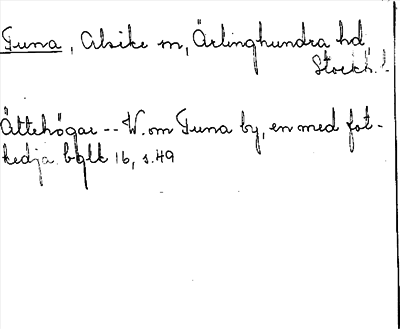 Tuna, Alsike sn, Ärlinghundra hd,
Stockh. l.
Ättehögar -- V. om Tuna by, en med fot-
kedja. bglk 16, s. 49